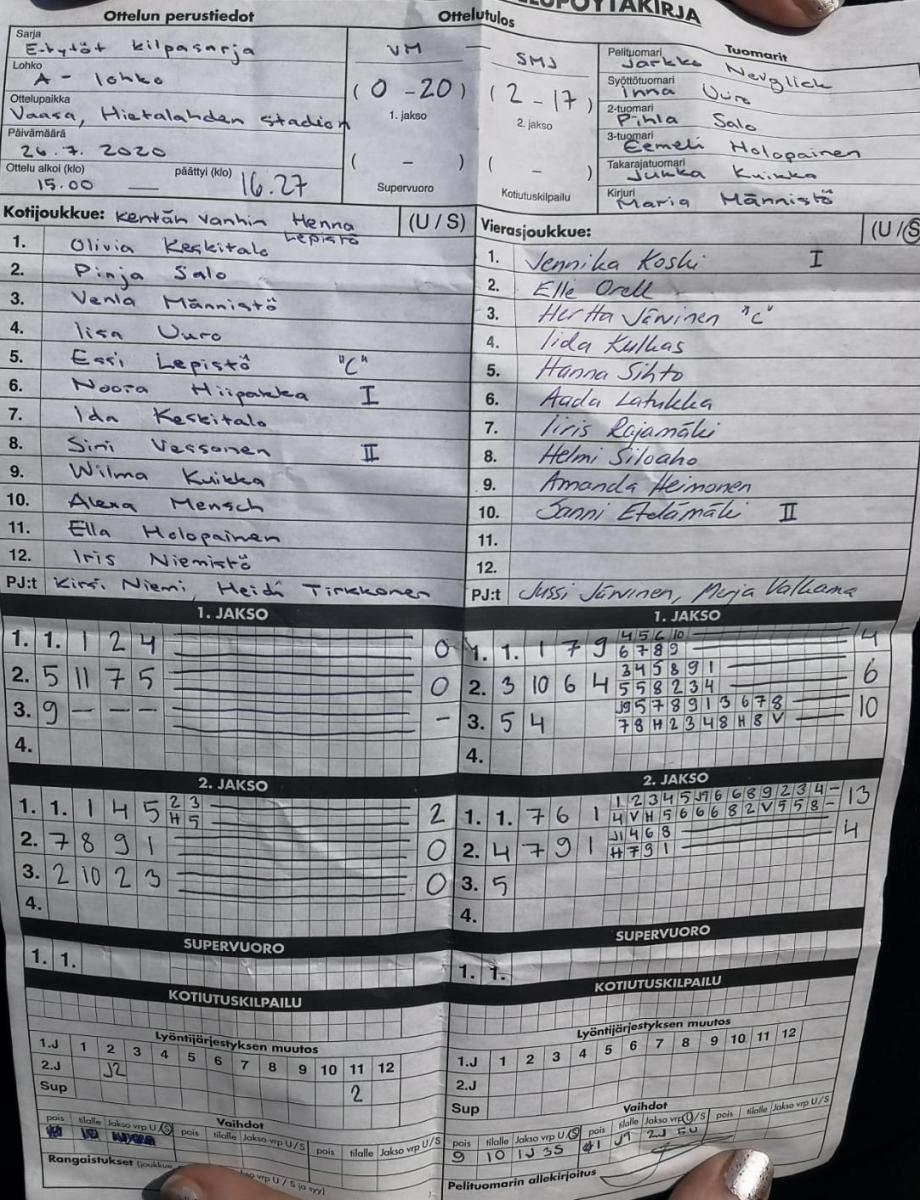 Ottelun perustiedot
Ottelutulos
Sarja
E-tytöt kilpasarja
Lohko
A - lohko
Ottelupaikka
Vaasa, Hietalahden stadion
Päivämäärä
26.7. 2020
Ottelu alkoi (klo) päättyi (klo)
15.00 — 16.27
VM — SMJ
(0 - 20) (2 - 17)
1. jakso 2. jakso
( - ) ( - )
Supervuoro Kotiutuskilpailu
Tuomarit
Pelituomari
Jarkko Nevglick
Syöttötuomari
Inna Uuro
2-tuomari
Pihla Salo
3-tuomari
Eemeli Holopainen
Takarajatuomari
Jukka Kuikka
Kirjuri
Maria Männistö
Kotijoukkue: Kentän vanhin Henna Lepistö (U / S)
1. Olivia Keskitalo
2. Pinja Salo
3. Venla Männistö
4. Iisa Uuro
5. Essi Lepistö "C"
6. Noora Hiipakka I
7. Ida Keskitalo
8. Sini Vessonen II
9. Wilma Kuikka
10. Alexa Mensch
11. Ella Holopainen
12. Iris Niemistö
PJ:t Kirsi Niemi, Heidi Tirkkonen
Vierasjoukkue: (U / S)
1. Jennika Koski I
2. Elle Orell
3. Hertta Järvinen "C"
4. Iida Kulhas
5. Hanna Sihto
6. Aada Latukka
7. Iiris Rajamäki
8. Helmi Siloaho
9. Amanda Heimonen
10. Sanni Etelämäki II
11.
12.
PJ:t Jussi Järvinen, Merja Valkama
1. JAKSO
1. 1. 1 2 4 0
2. 5 11 7 5 0
3. 9 - - - -
4.
2. JAKSO
1. 1. 1 4 5 2 3 2
H 5
2. 7 8 9 1 0
3. 2 10 2 3 0
4.
SUPERVUORO
1. 1.
KOTIUTUSKILPAILU
Lyöntijärjestyksen muutos
1.J 1 2 3 4 5 6 7 8 9 10 11 12
2.J J2
Sup 2
Vaihdot
pois tilalle Jakso vrp U/S pois tilalle Jakso vrp U/S pois tilalle Jakso vrp U/S
Rangaistukset (joukkue
1. JAKSO
1. 1. 1 7 9 4 5 6 10 4
6 7 8 9
2. 3 10 6 4 3 4 5 8 9 1 6
5 5 8 2 3 4
3. 5 4 J9 5 7 8 9 1 3 6 7 8 10
7 8 H 2 3 4 8 H 8 V
4.
2. JAKSO
1. 1. 7 6 1 1 2 3 4 5 J9 6 6 8 9 2 3 4 - 13
4 V H 5 6 6 6 8 2 V 5 5 8 -
2. 4 7 9 1 J1 4 6 8 4
H 7 9 1
3. 5
4.
SUPERVUORO
1. 1.
KOTIUTUSKILPAILU
Lyöntijärjestyksen muutos
1.J 1 2 3 4 5 6 7 8 9 10 11 12
2.J
Sup
Vaihdot
pois tilalle Jakso vrp U/S pois tilalle Jakso vrp U/S pois tilalle Jakso vrp U/S
9 10 1J 3S
Pelituomarin allekirjoitus